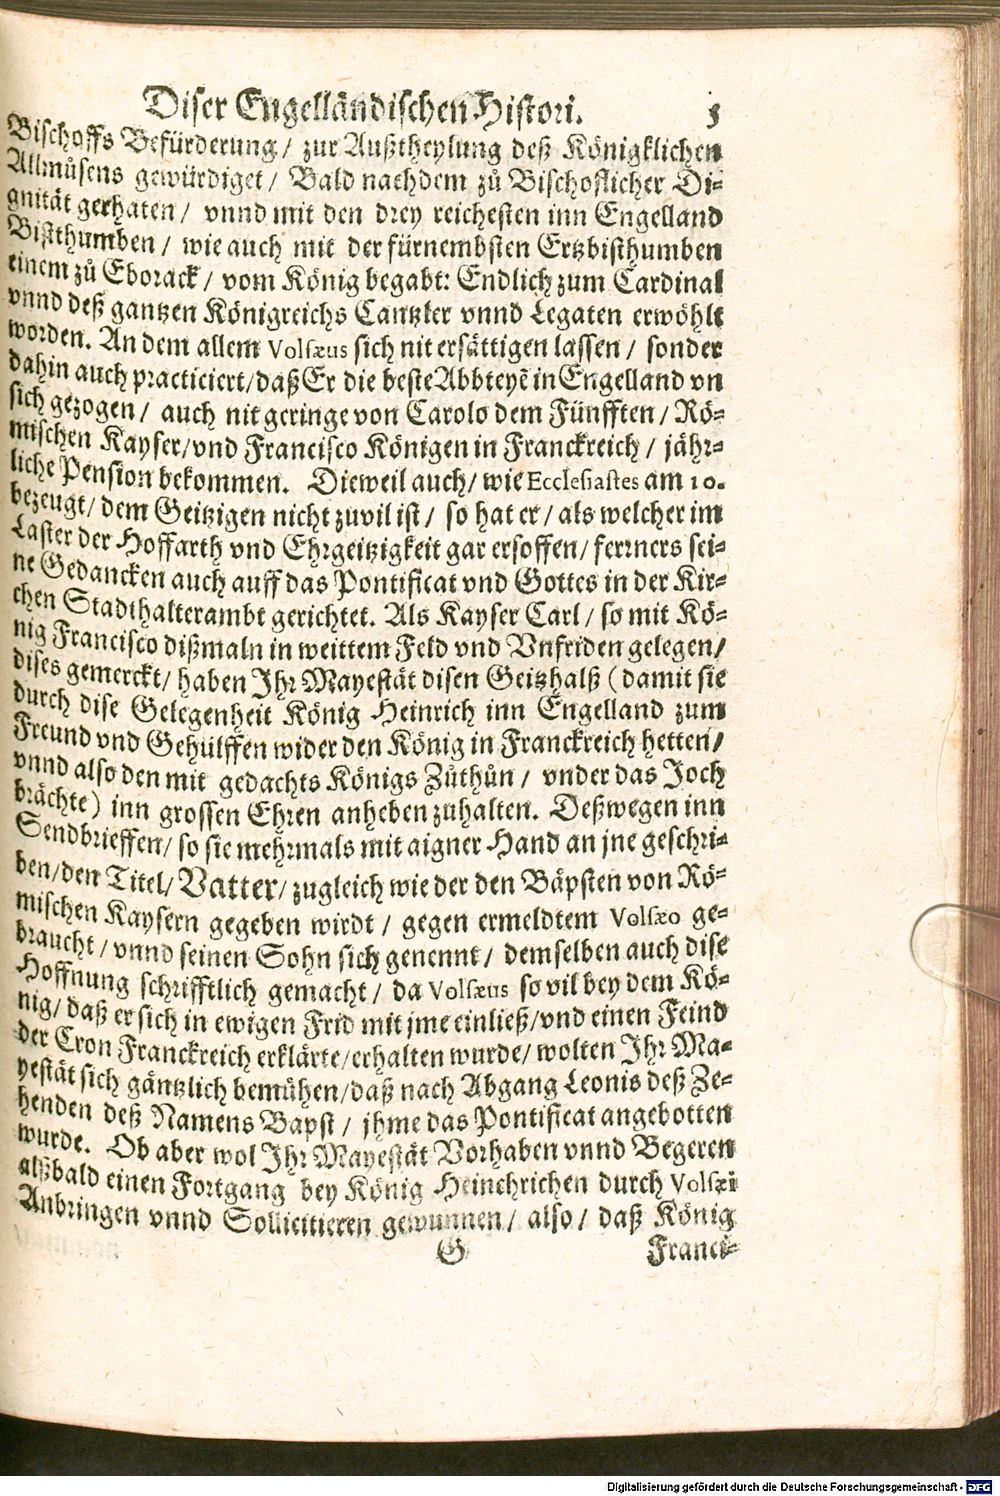 Diser Engelländischen Histori. 3
Bischoffs Befürderung/ zur Außtheylung deß Königklichen
Allmůsens gewürdiget/ Bald nachdem zů Bischoflicher Di-
gnität gerhaten/ vnnd mit den drey reichesten inn Engelland
Bisthumben/ wie auch mit der fürnembsten Ertzbisthumben
einem zů Eborack/ vom König begabt: Endlich zum Cardinal
vnnd deß gantzen Königreichs Cantzler vnnd Legaten erwöhlt
worden. An dem allem Volsæus sich nit ersättigen lassen/ sonder
dahin auch practiciert/daß Er die beste Abbteyẽ in Engelland vn
sich gezogen/ auch nit geringe von Carolo dem Fünfften/ Rö-
mischen Kayser/vnd Francisco Königen in Franckreich/ jähr-
liche Pension bekommen. Dieweil auch/ wie Ecclesiastes am 10.
bezeugt/ dem Geitzigen nicht zuvil ist/ so hat er/ als welcher im
Laster der Hoffarth vnd Ehrgeitzigkeit gar ersoffen/ ferrners sei-
ne Gedancken auch auff das Pontificat vnd Gottes in der Kir-
chen Stadthalterambt gerichtet. Als Kayser Carl/ so mit Kö-
nig Francisco dißmaln in weittem Feld vnd Vnfriden gelegen/
dises gemerckt/ haben Ihr Mayestät disen Geitzhalß (damit sie
durch dise Gelegenheit König Heinrich inn Engelland zum
Freund vnd Gehülffen wider den König in Franckreich hetten/
vnnd also den mit gedachts Königs Zůthůn/ vnder das Joch
brächte) inn grossen Ehren anheben zuhalten. Deßwegen inn
Sendbrieffen/ so sie mehrmals mit aigner Hand an jne geschri-
ben/den Titel/ Vatter/ zugleich wie der den Bäpsten von Rö-
mischen Kaysern gegeben wirdt/ gegen ermeldtem Volsæo ge-
braucht/ vnnd seinen Sohn sich genennt/ demselben auch dise
Hoffnung schrifftlich gemacht/ da Volsæus so vil bey dem Kö-
nig/ daß er sich in ewigen Frid mit jme einließ/vnd einen Feind
der Cron Franckreich erklärte/erhalten wurde/ wolten Ihr Ma-
yestät sich gäntzlich bemühen/daß nach Abgang Leonis deß Ze-
henden deß Namens Bapst/ jhme das Pontificat angebotten
wurde. Ob aber wol Ihr Mayestät Vorhaben vnnd Begeren
alßbald einen Fortgang bey König Heinchrichen durch Volsæi
Anbringen vnnd Sollicitieren gewunnen/ also/ daß König
G Franci-
Digitalisierung gefördert durch die Deutsche Forschungsgemeinschaft - DFG